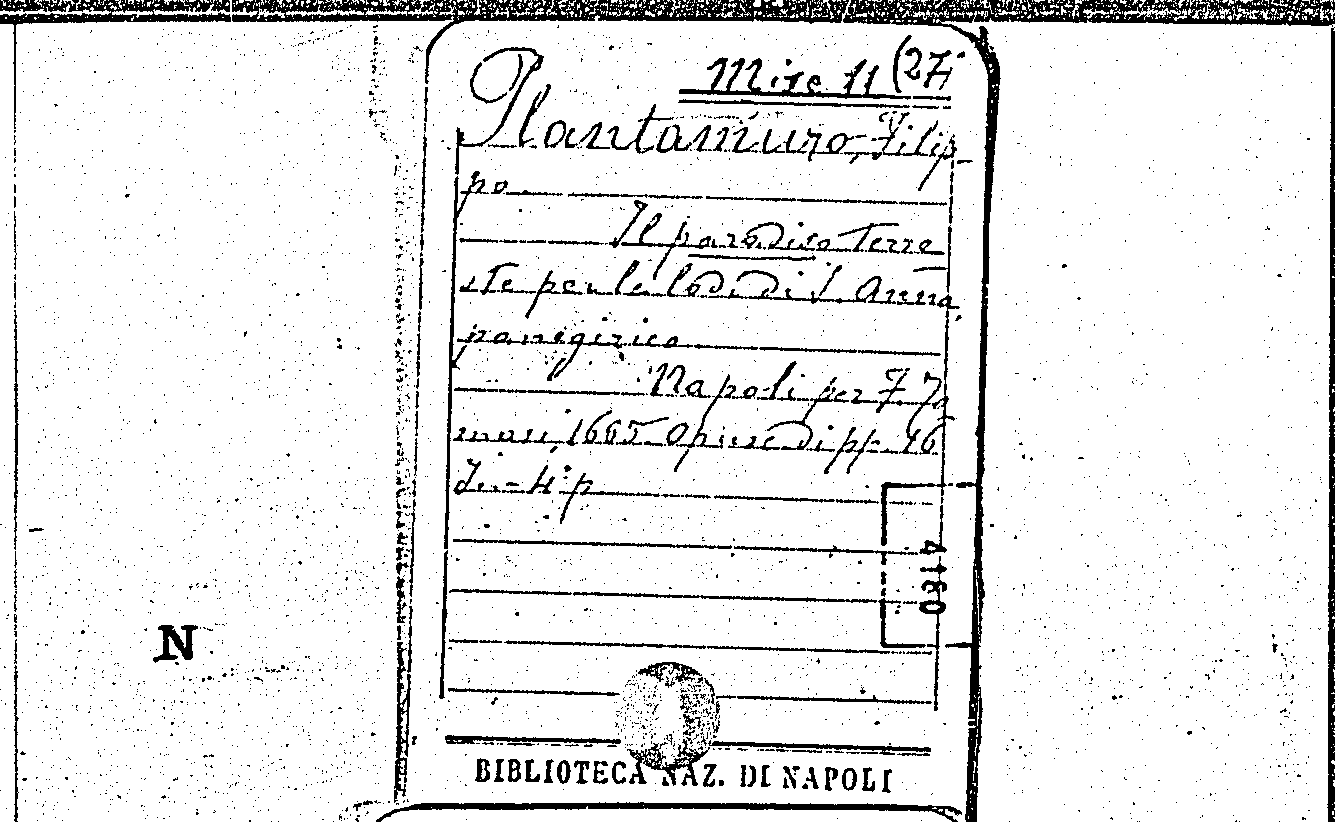 Misc 11 (27
Plantamuro, Filip-
po.
Il paradiso Terre
ste per le lodi di S. Anna,
panegirico.
Napoli per
1665 Opusc di pp. 16
In-4° p
4180
N
BIBLIOTECA NAZ. DI NAPOLI